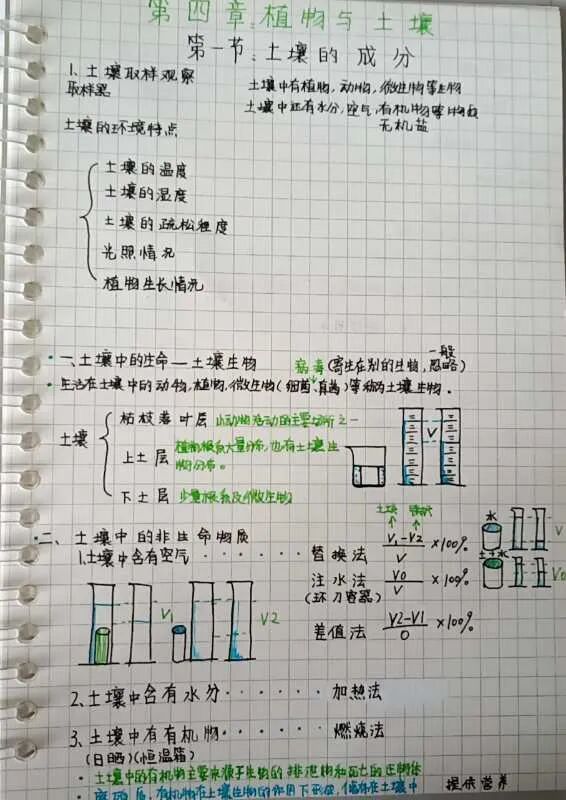 第四章:植物与土壤
第一节:土壤的成分
1、土壤取样观察
取样器
土壤中有植物,动物,微生物等生物
土壤中还有水分,空气,有机物等物质
无机盐
土壤的环境特点
土壤的温度
土壤的湿度
土壤的疏松程度
光照情况
植物生长情况
一般
一、土壤中的生命—土壤生物 病毒(寄生在别的生物,忽略)
生活在土壤中的动物,植物,微生物(细菌、真菌)等称为土壤生物。
土壤
枯枝落叶层 小动物活动的主要场所之一
上土层 植物根系大量分布,也有土壤生
物分布。
下土层 少量根系及微生物
V
二、土壤中的非生命物质
1.土壤中含有空气······
土块
替换法 V1-V2/V ×100%
注水法 V0/V ×100%
(环刀容器)
差值法 V2-V1/0 ×100%
水
V
土+水
V0
V1
V2
2、土壤中含有水分······ 加热法
3、土壤中有有机物······ 燃烧法
(日晒)(恒温箱)
土壤中的有机物主要来源于生物的排泄物和死亡的生物体
后,有机物在土壤生物的作用下形成,储存在土壤中
提供营养